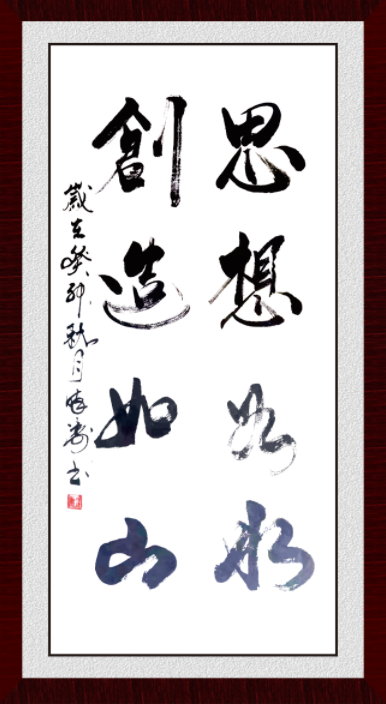 思想如水
創造如山
歲在癸卯秋月書